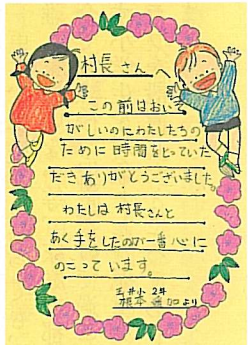 村長さんへ
この前はおい
がしいのにわたしたちの
ために時間をとっていた
だきありがとうございました。
わたしは村長さんと
あく手をしたのが一番心に
のこっています。
玉井小 2年
根本 加より